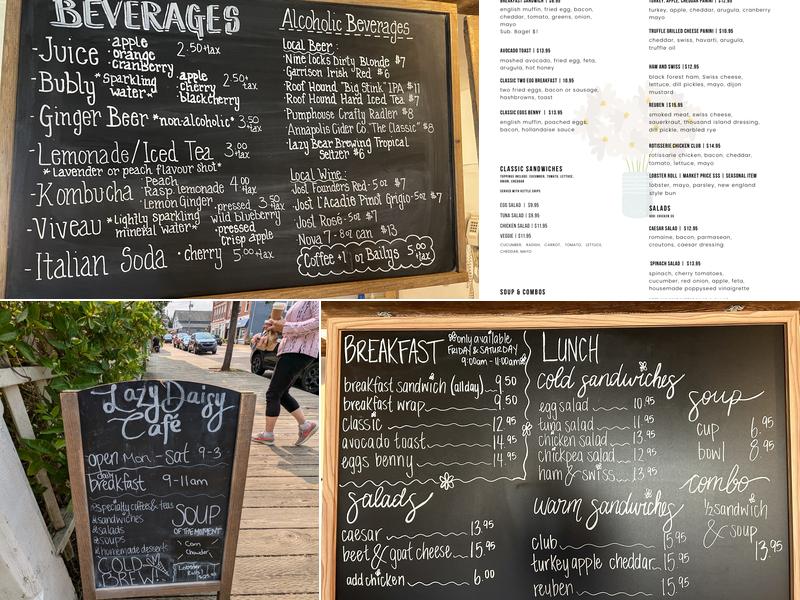 BEVERAGES
-Juice :apple
:orange
:cranberry
2.50+tax
-Bubly *sparkling
water*
:apple
:cherry
:blackcherry
2.50+
tax
-Ginger Beer *non-alcoholic* 3.50
+tax
-Lemonade/Iced Tea 3.00
+tax
*lavender or peach flavour shot*
-Kombucha :Peach
:Rasp. lemonade
:Lemon Ginger
4.00
+tax
-Viveau *lightly sparkling
mineral water*
:pressed
wild blueberry
:pressed
crisp apple
3.50
+tax
-Italian Soda :cherry 5.00+tax
Alcoholic Beverages
local Beer:
·Nine locks Dirty Blonde $7
·Garrison Irish "Red" $6
·Roof Hound "Big Stink" IPA $11
·Roof Hound Hard Iced Tea $7
·Pumphouse Crafty Radler $8
·Annapolis Cider Co. "The Classic" $8
·Lazy Bear Brewing Tropical
Seltzer $6
Local Wine:
·Jost Founders Red-5oz $7
·Jost l'Acadie Pinot Grigio-5oz $7
·Jost Rosé-5oz $7
·Nova 7-8oz can $13
Coffee +1 oz Bailys 5.00
+tax
english muffin, fried egg, bacon,
cheddar, tomato, greens, onion,
mayo
Sub. Bagel $1
AVOCADO TOAST | $13.95
mashed avocado, fried egg, feta,
arugula, hot honey
CLASSIC TWO EGG BREAKFAST | 10.95
two fried eggs, bacon or sausage,
hashbrowns, toast
CLASSIC EGGS BENNY | $13.95
english muffin, poached eggs,
bacon, hollandaise sauce
CLASSIC SANDWICHES
TOPPINGS INCLUDE: CUCUMBER, TOMATO, LETTUCE,
ONION, CHEDDAR
SERVED WITH KETTLE CHIPS
EGG SALAD | $9.95
TUNA SALAD | $9.95
CHICKEN SALAD | $11.95
VEGGIE | $11.95
CUCUMBER, RADISH, CARROT, TOMATO, LETTUCE,
CHEDDAR, MAYO
SOUP & COMBOS
turkey, apple, cheddar, arugula, cranberry
mayo
TRUFFLE GRILLED CHEESE PANINI | $10.95
cheddar, swiss, havarti, arugula,
truffle oil
HAM AND SWISS | $12.95
black forest ham, Swiss cheese,
lettuce, dill pickles, mayo, dijon
mustard
REUBEN | $15.95
smoked meat, swiss cheese,
sauerkraut, thousand island dressing,
dill pickle, marbled rye
ROTISSERIE CHICKEN | $14.95
rotisserie chicken, bacon, cheddar,
tomato, lettuce, mayo
LOBSTER ROLL | MARKET PRICE $$$ | SEASONAL ITEM
lobster, mayo, parsley, new england
style bun
SALADS
ADD CHICKEN $6
CAESAR SALAD | $12.95
romaine, bacon, parmasean,
croutons, caesar dressing
SPINACH SALAD | $13.95
spinach, cherry tomatoes,
cucumber, red onion, apple, feta,
housemade poppyseed vinaigrette
Lazy Daisy
Café
open Mon-Sat 9-3
daily
breakfast 9-11am
specialty coffees & teas
sandwiches
salads
soups
homemade desserts
SOUP
OF THE MOMENT
Corn
Chowder
COLD
BREW!
Lobster
Rolls!
BREAKFAST
only available
FRIDAY & SATURDAY
9:00am-11:00am
breakfast sandwich (all day) 9.50
breakfast wrap 9.50
classic 12.95
avocado toast 14.95
eggs benny 14.95
salads
caesar 13.95
beet & goat cheese 15.95
add chicken 6.00
LUNCH
cold sandwiches
egg salad 10.95
tuna salad 11.95
chicken salad 13.95
chickpea salad 12.95
ham & swiss 13.95
warm sandwiches
club 15.95
turkey apple cheddar 15.95
reuben 15.95
soup
cup 6.95
bowl 8.95
combo
½ sandwich
& soup
13.95